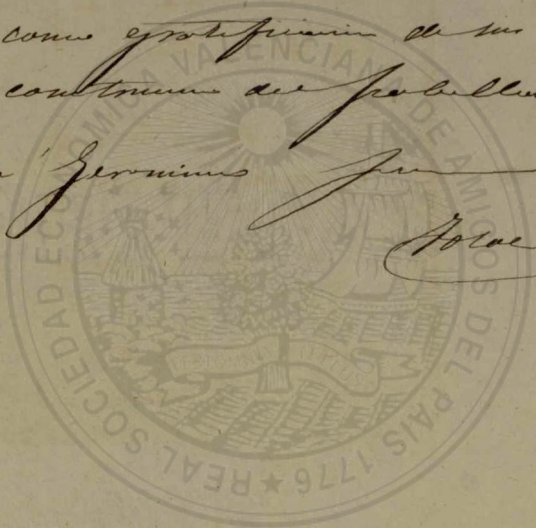 como gratificacion de sus
construccion del pabellon
Geronimo
Total
REAL SOCIEDAD ECONOMICA VALENCIANA DE AMIGOS DEL PAIS 1776